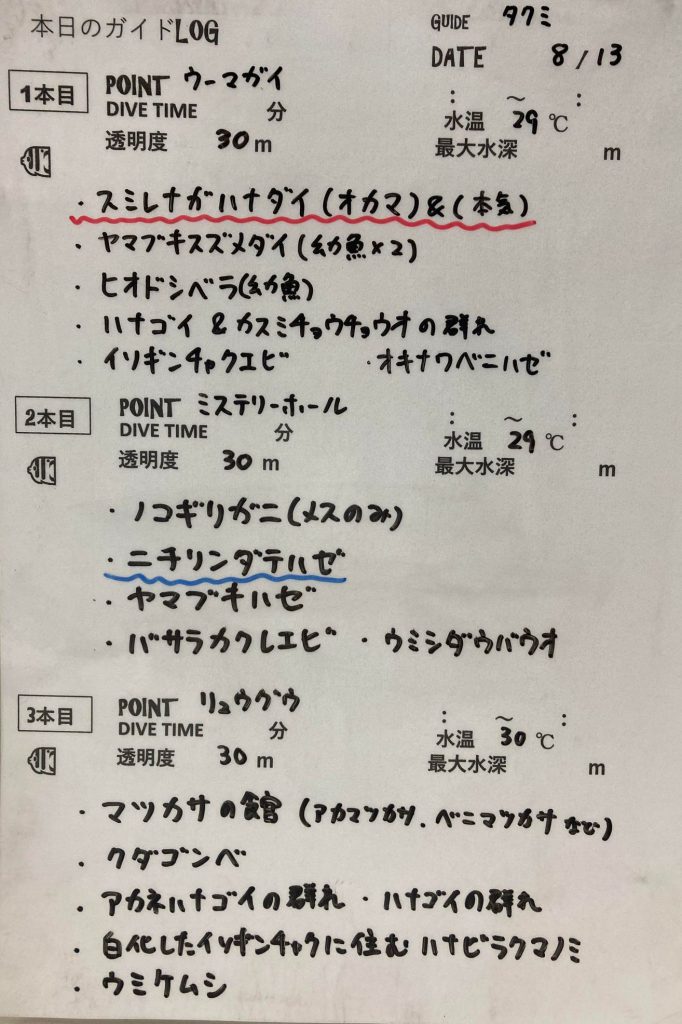 本日のガイドLOG
GUIDE タクミ
DATE 8/13
1本目 POINT ウーマガイ
DIVE TIME 分 : ～ :
透明度 30m 水温 29℃
最大水深 m
・スミレナガハナダイ(オカマ)&(本気)
・ヤマブキスズメダイ(幼魚×2)
・ヒオドシベラ(幼魚)
・ハナゴイ & カスミチョウチョウオの群れ
・イソギンチャクエビ ・オキナワベニハゼ
2本目 POINT ミステリーホール
DIVE TIME 分 : ～ :
透明度 30m 水温 29℃
最大水深 m
・ノコギリガニ(メスのみ)
・ニチリンダテハゼ
・ヤマブキハゼ
・バサラカクレエビ ・ウミシダウバウオ
3本目 POINT リュウグウ
DIVE TIME 分 : ～ :
透明度 30m 水温 30℃
最大水深 m
・マツカサの館 (アカマツカサ、ベニマツカサなど)
・クダゴンベ
・アカネハナゴイの群れ ・ハナゴイの群れ
・白化したイソギンチャクに住むハナビラクマノミ
・ウミケムシ